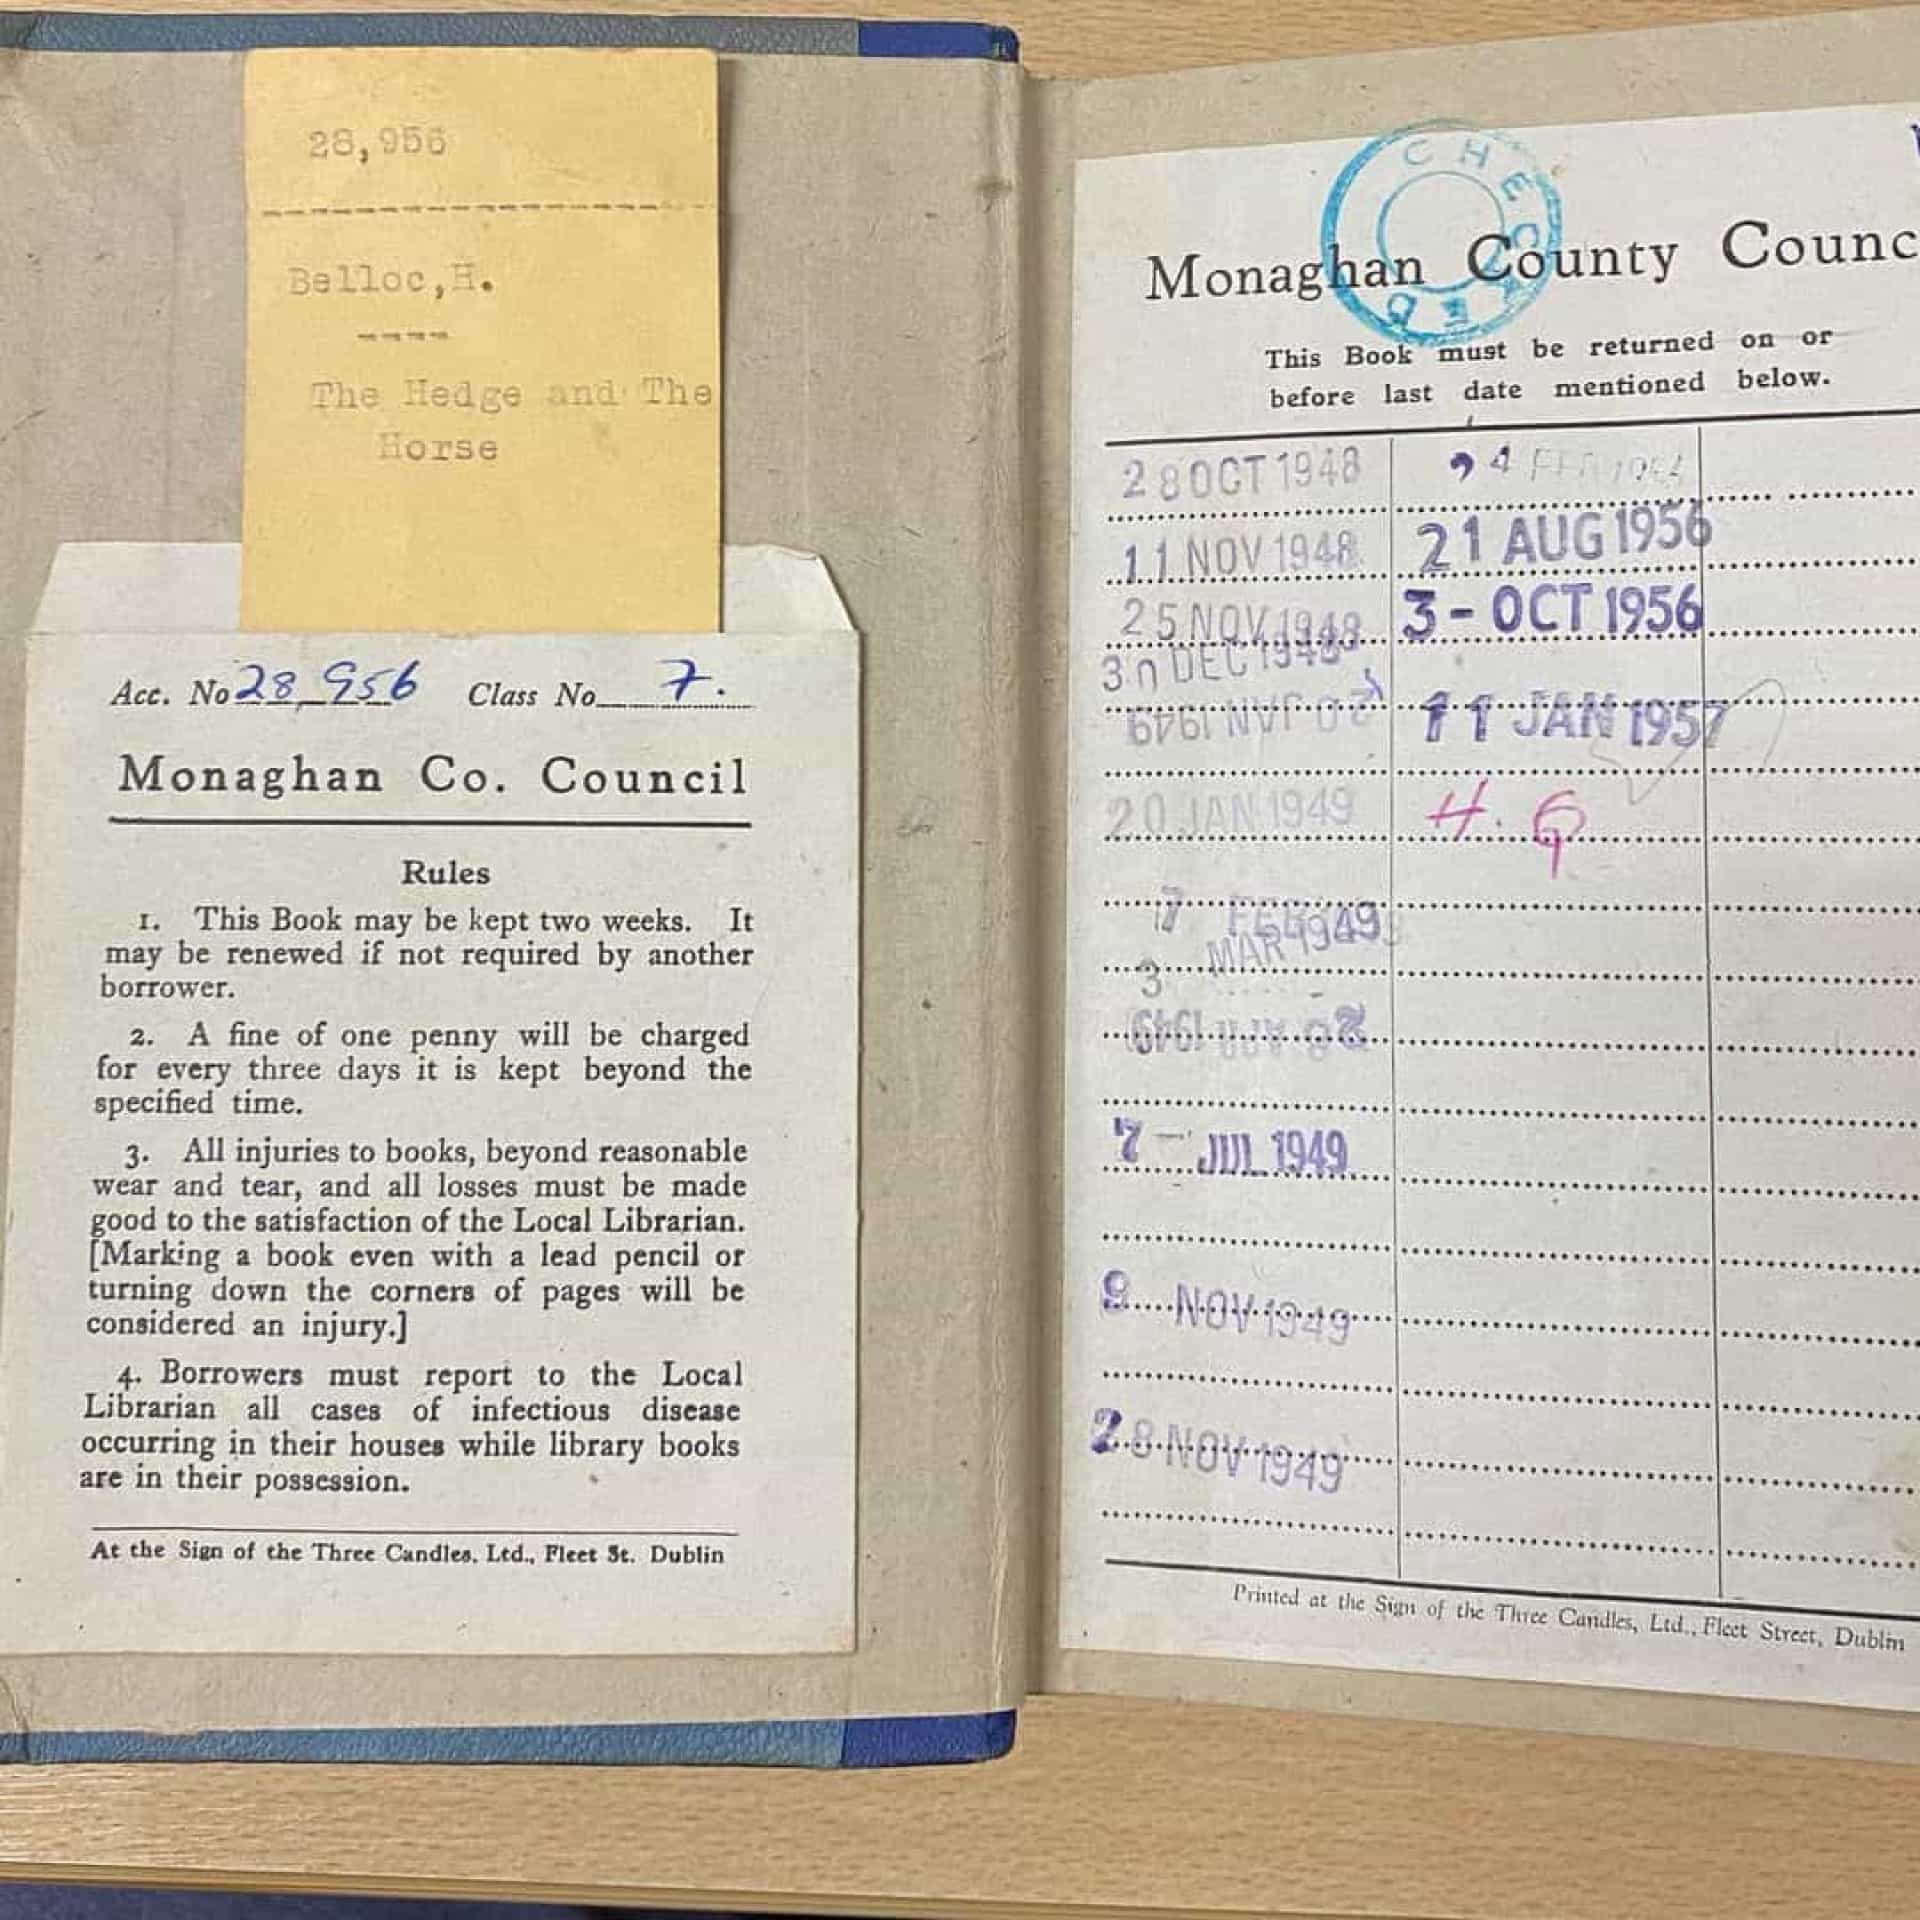 28,956
Belloc,H.
The Hedge and The
Horse
Acc. No 28,956 Class No 7.
Monaghan Co. Council
Rules
1. This Book may be kept two weeks. It
may be renewed if not required by another
borrower.
2. A fine of one penny will be charged
for every three days it is kept beyond the
specified time.
3. All injuries to books, beyond reasonable
wear and tear, and all losses must be made
good to the satisfaction of the Local Librarian.
[Marking a book even with a lead pencil or
turning down the corners of pages will be
considered an injury.]
4. Borrowers must report to the Local
Librarian all cases of infectious disease
occurring in their houses while library books
are in their possession.
At the Sign of the Three Candles, Ltd., Fleet St. Dublin
CHECKED
Monaghan County Counc
This Book must be returned on or
before last date mentioned below.
28 OCT 1948
11 NOV 1948
25 NOV 1948
30 DEC 1948
20 JAN 1949
20 JAN 1949
7 FEB 1949
3 MAR 1949
1949
7 - JUL 1949
9 NOV 1949
28 NOV 1949
4 FEB
21 AUG 1956
3 - OCT 1956
11 JAN 1957
H. G
Printed at the Sign of the Three Candles, Ltd., Fleet Street, Dublin